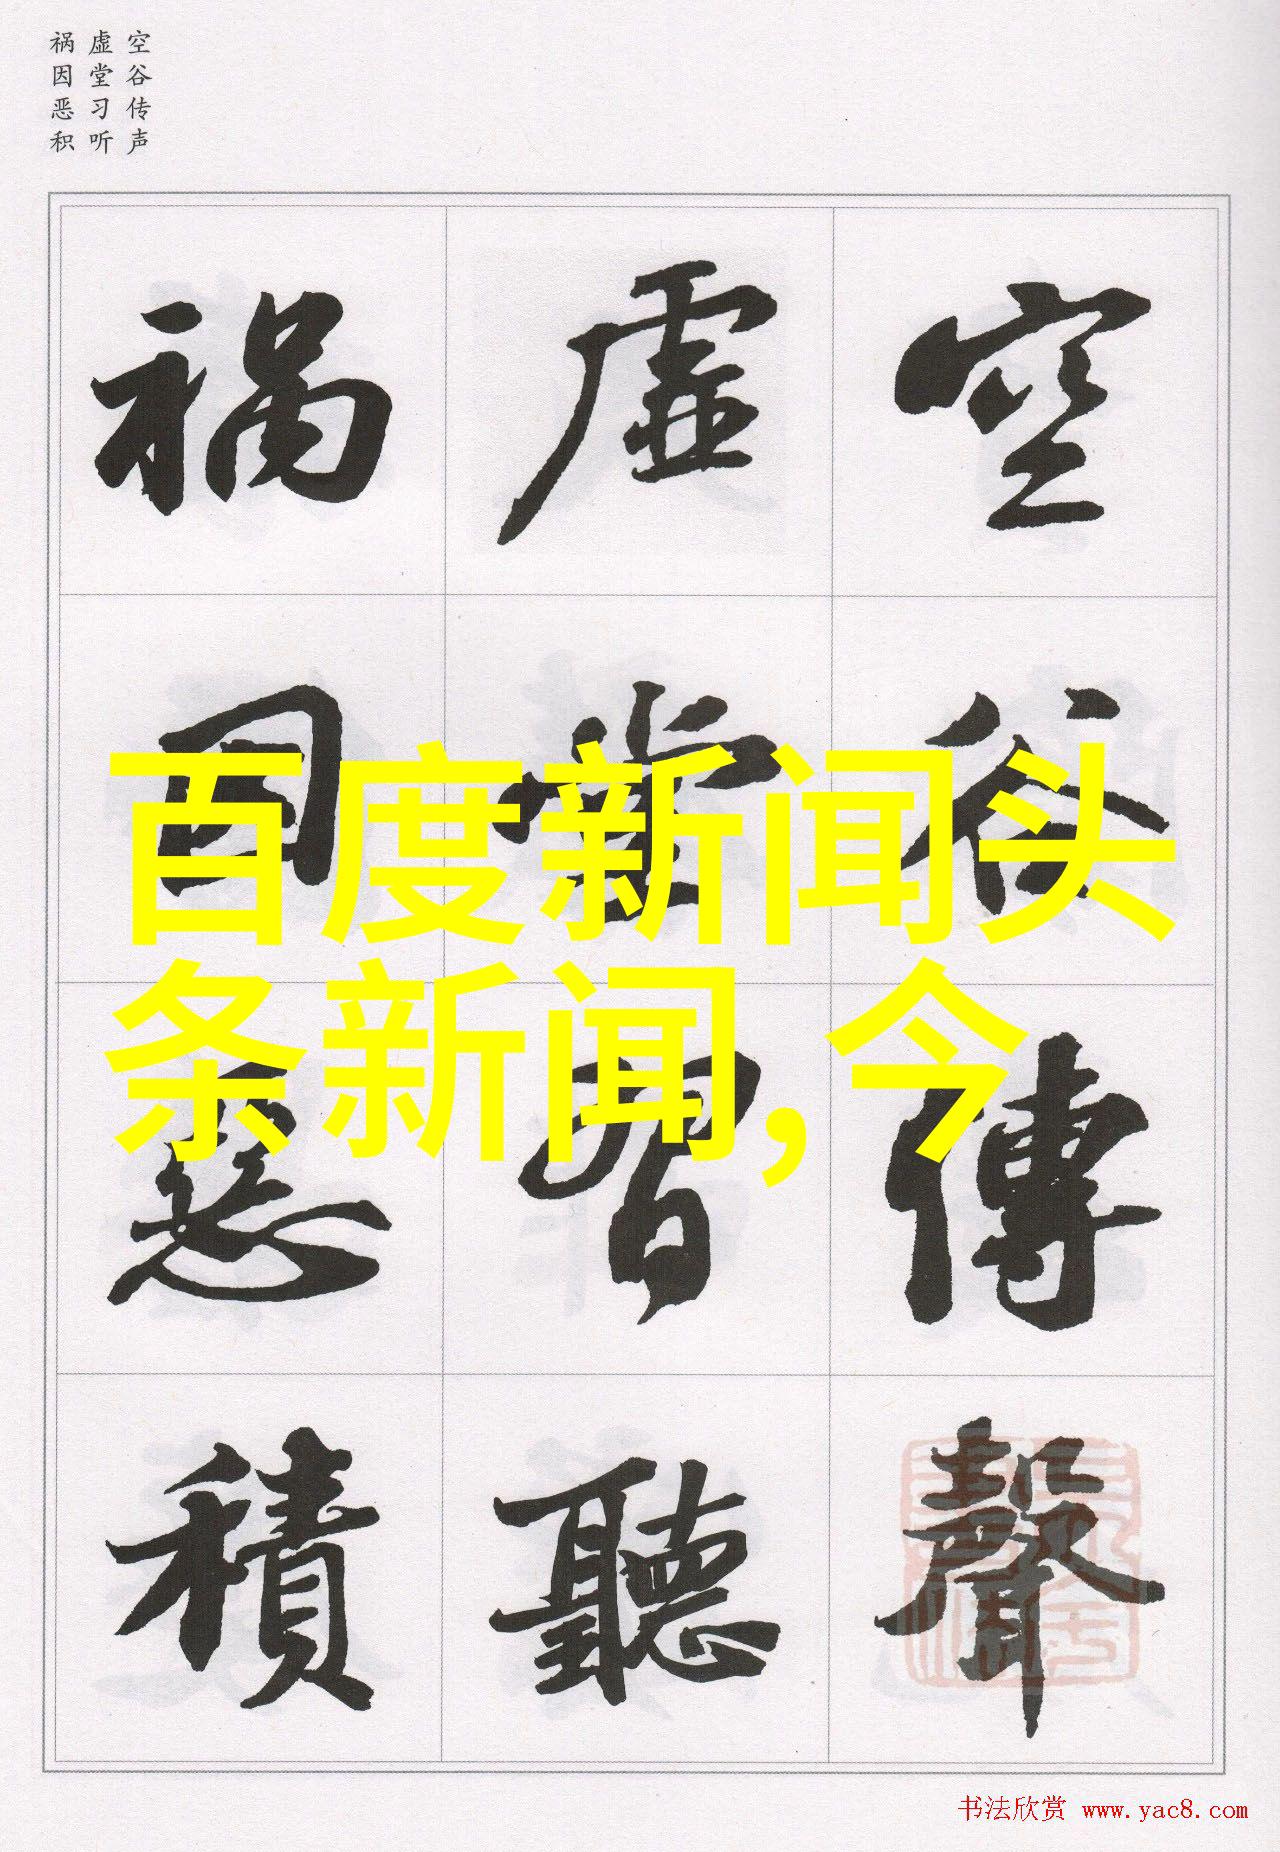 空谷传声
虚堂习听
祸因恶积
空谷傳聲
虚堂習聽
禍因惡積
百度新闻头
条新闻,今
书法欣赏 www.yac8.com